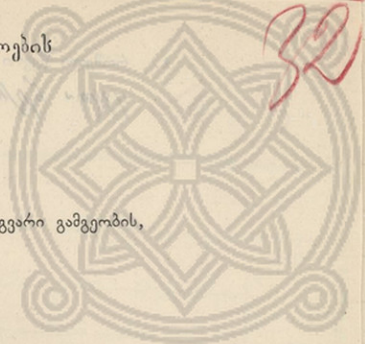 32
ოების
გვარი გამგეობის,